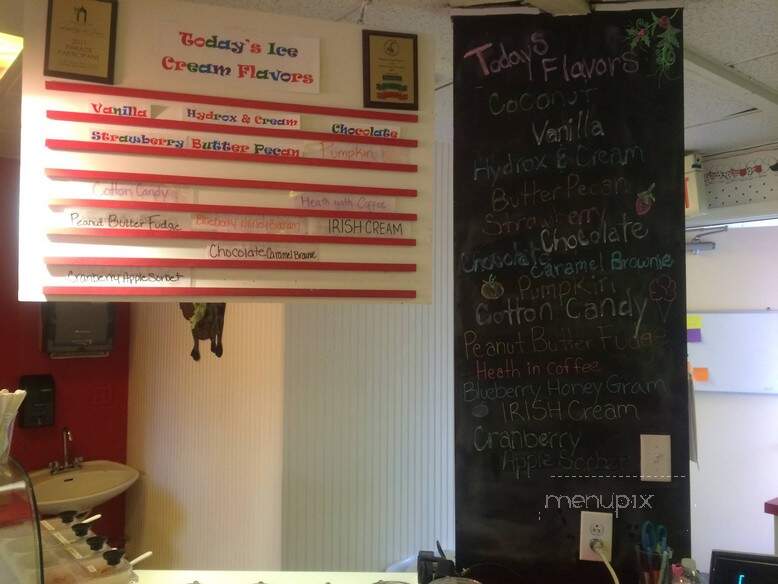 Today's Ice
Cream Flavors
Vanilla Hydrox & Cream Chocolate
Strawberry Butter Pecan Pumpkin
Cotton Candy Heath with Coffee
Peanut Butter Fudge Blueberry Honey Graham IRISH CREAM
Chocolate Caramel Brownie
Cranberry Apple Sorbet
Todays
Flavors
Coconut
Vanilla
Hydrox & Cream
Butter Pecan
Strawberry
Chocolate
Chocolate
Caramel Brownie
Pumpkin
Cotton Candy
Peanut Butter Fudge
Heath in coffee
Blueberry Honey Gram
IRISH Cream
Cranberry
Apple Sorbet
menupix